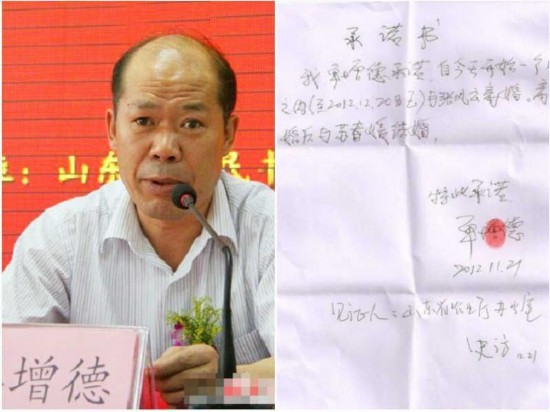 ：山东 民
增德
承诺书
我单增德承诺，自今天开始一个月
之内(至2012.12.20日)与张凤云离婚。离
婚后与苏春媛结婚。
特此承诺
单增德
2012.11.21
见证人：山东省农业厅办公室
11.21